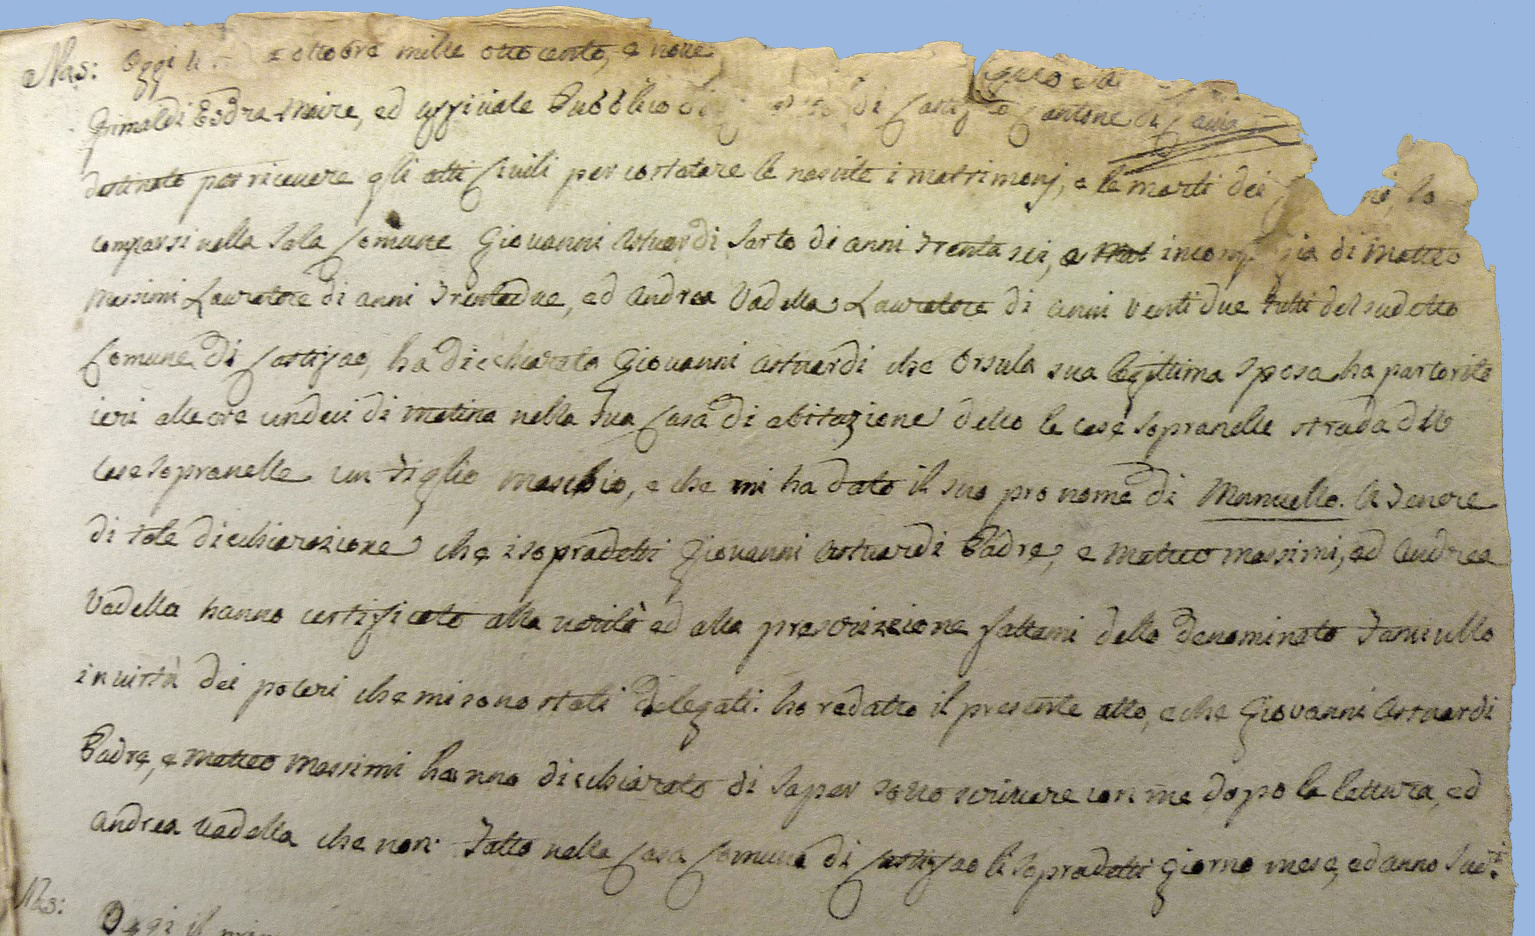 Nas: Oggi li ottobre mille otto cento, e nove
Grimaldi Esdra Maire, ed uffiziale Pubblico di Cantone di
destinato per ricevere gli atti Civili per costatare le nascite i matrimonj, e le morti dei
comparsi nella Sala Comune Giovanni Astuardi Sarto di anni trenta sei, e di Matteo
Massimi Lavratore di anni trentadue, ed Andrea Vadella Lavratore di anni venti due tutti del sudetto
Comune di ha dicchiarato Giovanni Astuardi che Orsula sua legittima sposa ha partorito
ieri alle ore undeci di matina nella sua Casa di abitazione detto le case sopranelle strada dtto
case sopranelle un figlio maschio, e che mi ha dato il suo pronome di Manuello. A tenore
di tale dicchiarazione che i sopradetti Giovanni Astuardi Padre, e Matteo Massimi, ed Andrea
Vadella hanno certificato alla verità ed alla prescrizione fattami dello denominato fanciullo
in virtù dei poteri che mi sono stati delegati. ho redatto il presente atto, e che Giovanni Astuardi
Padre, e Matteo Massimi hanno dicchiarato di saper sotto scrivere con me dopo la lettura, ed
Andrea Vadella che non. Fatto nella Casa Comune di li sopradetti giorno mese, ed anno
Nas: Oggi il